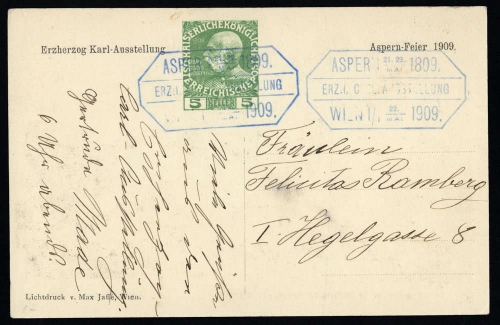 Erzherzog Karl-Ausstellung
Aspern-Feier 1909.
KAISERLICHEKÖNIGLICHE
ÖSTERREICHISCHE
5 HELLER 5
ASPERN 21.22. MAI 1809.
ERZ. C LLUNG
1909.
ASPERN 21.22. MAI 1809.
ERZ. C STELLUNG
WIEN 22. MAI 1909.
Viele Grüße
aus der
Erzherzog
Carl-Ausstellung.
Gertrude
6 Uhr abends.
Fräulein
Felicitas Ramberg
I Hegelgasse 8
Lichtdruck v. Max Jaffé, Wien.